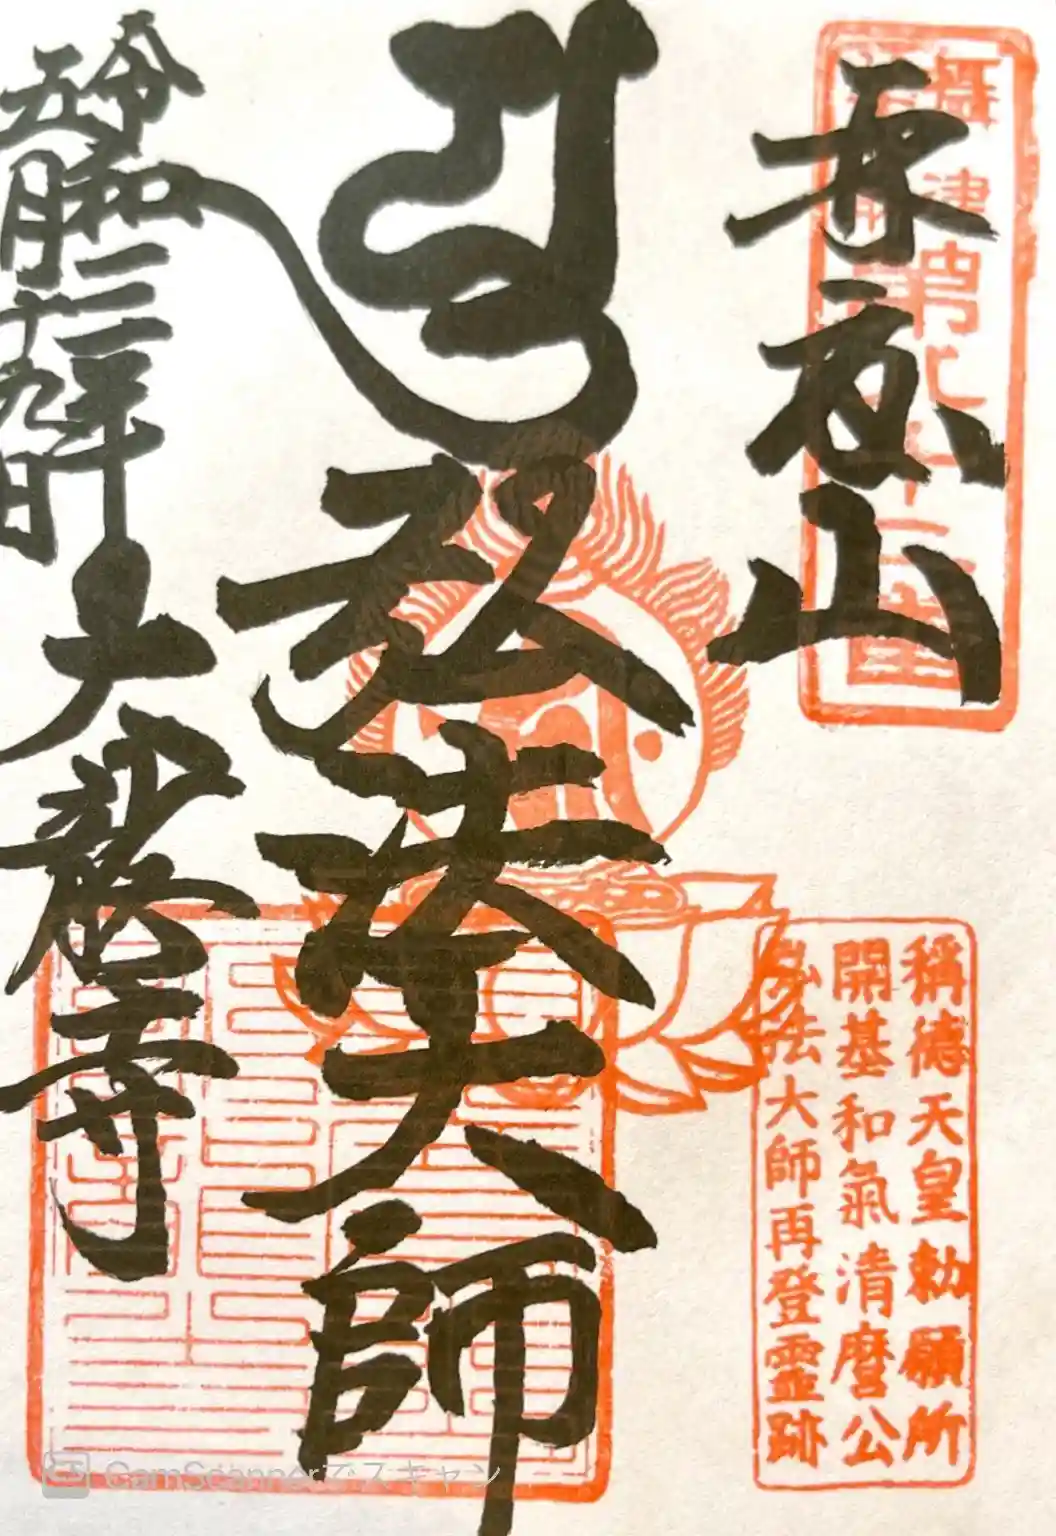 攝津第八十
再度山
稱德天皇勅願所
開基和氣清麿公
弘法大師再登靈跡
弘法大師
令和三年
五月十九日
大龍寺
CamScannerでスキャン